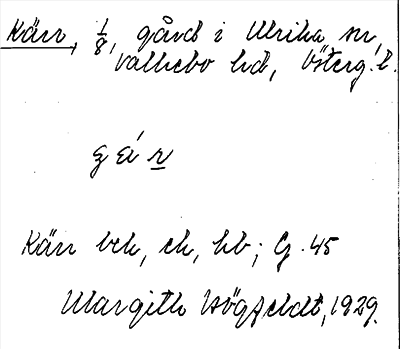 Kärr, 1/8, gård i Ulrika sn,
Valkebo hd, Österg. l.
Kärr bek, ek, hb; G. 45
Margith Högfeldt, 1929.